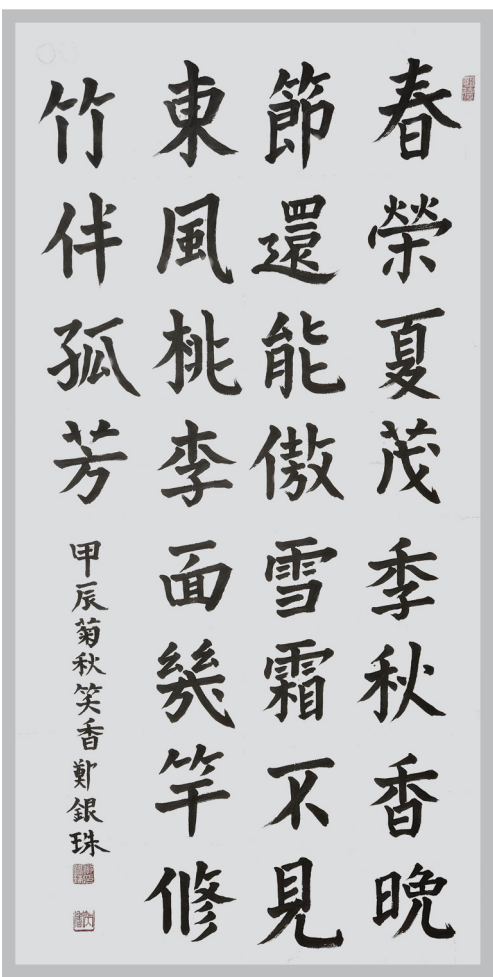 春榮夏茂季秋香晚
節還能傲雪霜不見
東風桃李面幾竿修
竹伴孤芳
甲辰菊秋笑香鄭銀珠